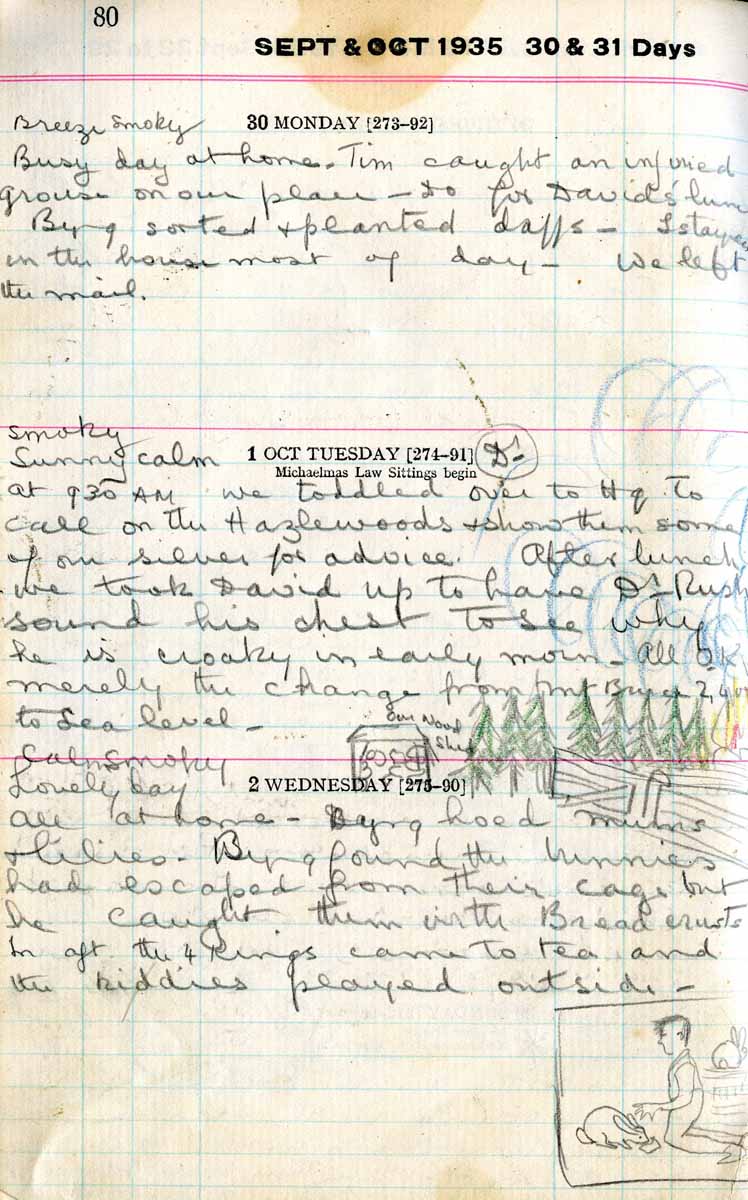 80
SEPT & OCT 1935 30 & 31 Days
Breeze smoky
30 MONDAY [273–92]
Busy day at home. Tim caught an injured
grouse on our place – do for David's lunch
Byng sorted & planted daffs – I stayed
in the house most of day – We left
the mail.
smoky
Sunny calm
1 OCT TUESDAY [274–91] Dr
Michaelmas Law Sittings begin
at 930 AM we toddled over to Hq to
call on the Hazlewoods & show them some
of our silver for advice. After lunch
we took David up to have Dr Rush
sound his chest to see why
he is croaky in early morn – All OK
merely the change from
to Sea level –
Our Wood
Shed
Calm smoky
Lovely day
2 WEDNESDAY [275–90]
all at home – Byng hoed mums
& lilies. Byng found the bunnies
had escaped from their cage but
he caught them with Bread crusts
In aft. the 4 Kings came to tea and
the kiddies played outside –